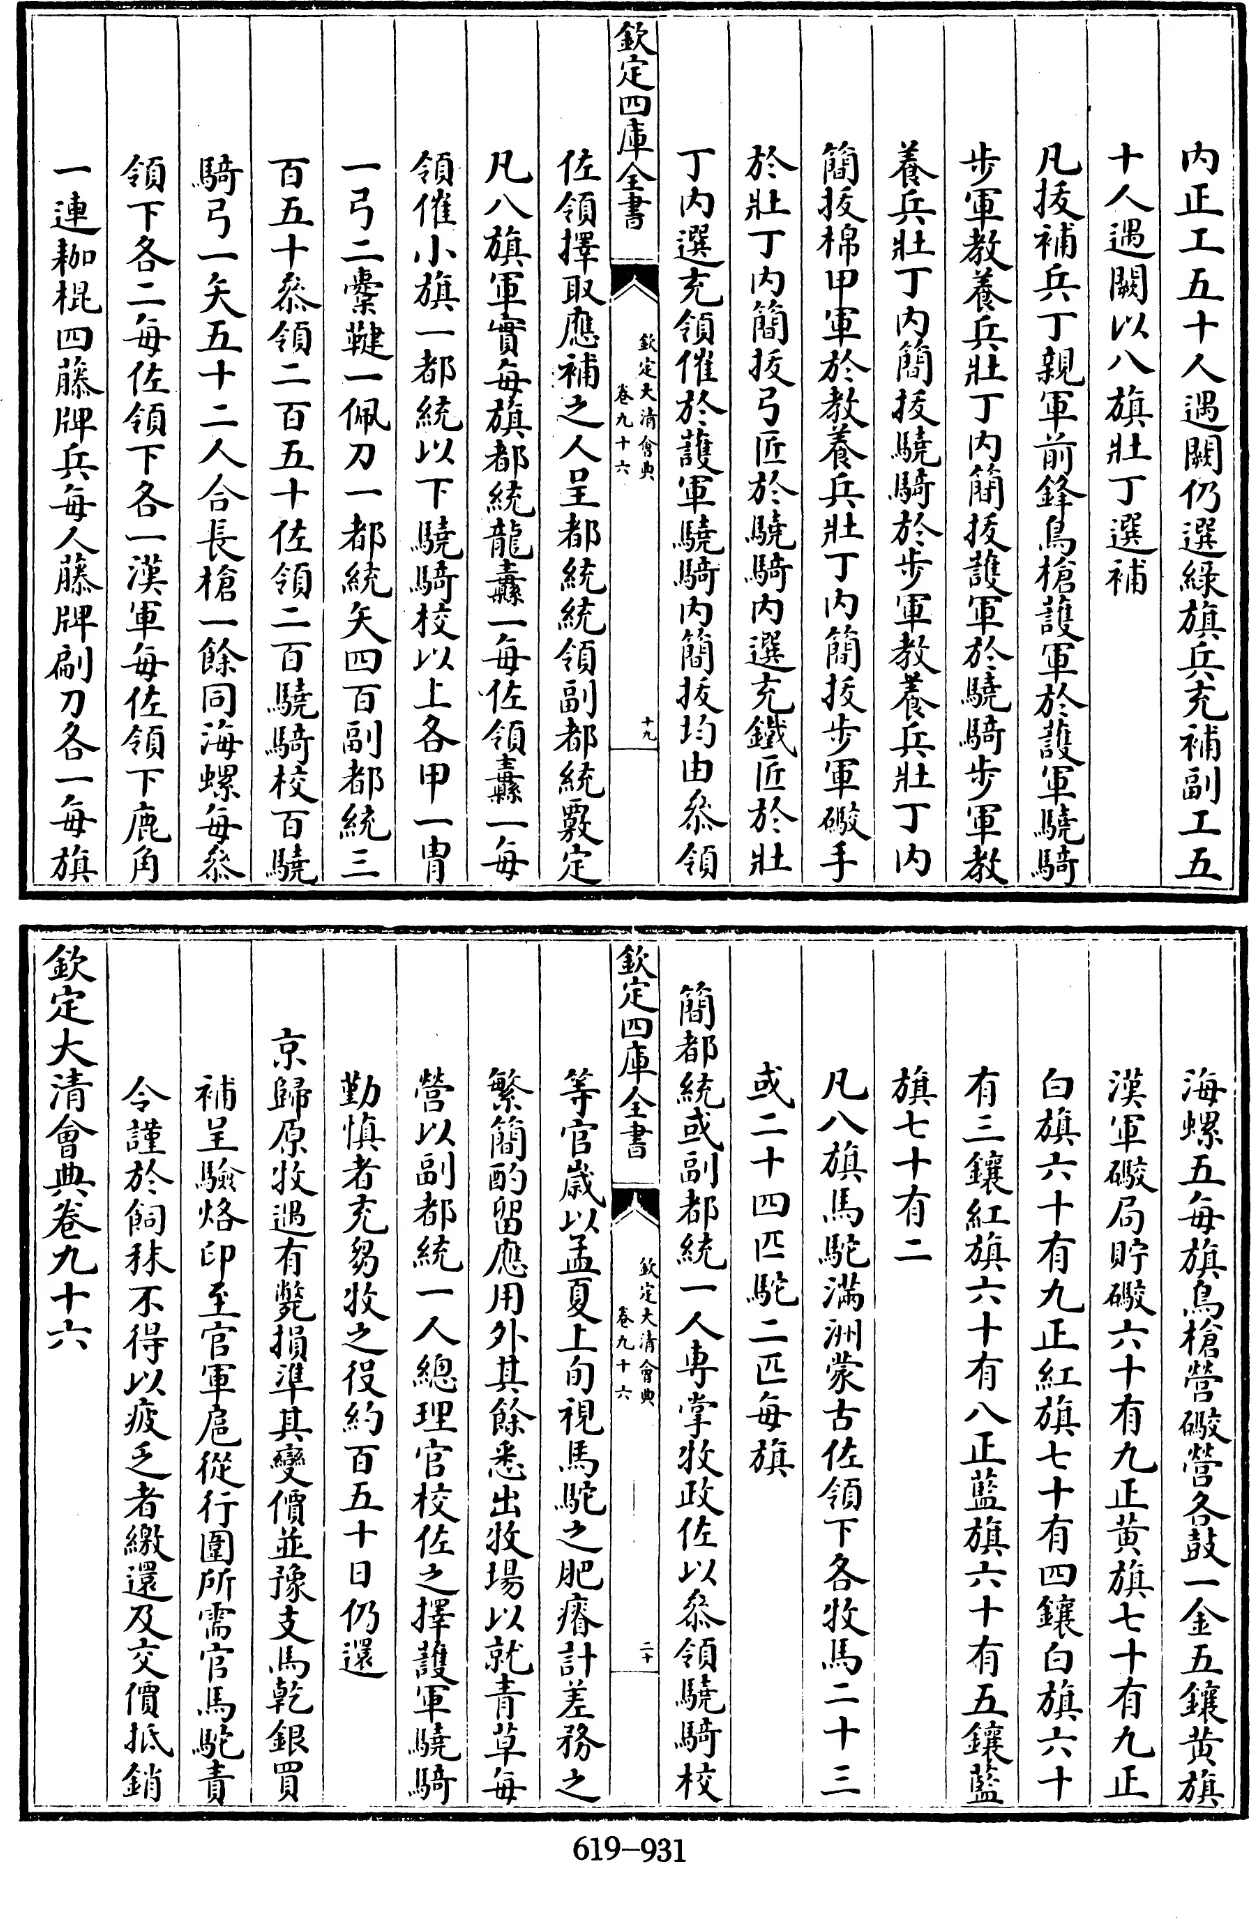 内正工五十人遇闕仍選綠旗兵充補副工五
十人遇闕以八旗壯丁選補
凡拔補兵丁親軍前鋒鳥槍護軍於護軍驍騎
步軍教養兵壯丁内簡拔護軍於驍騎步軍教
養兵壯丁内簡拔驍騎於步軍教養兵壯丁内
簡拔棉甲軍於教養兵壯丁内簡拔步軍礮手
於壯丁内簡拔弓匠於驍騎内選充鐵匠於壯
丁内選充領催於護軍驍騎内簡拔均由叅領
欽定四庫全書
欽定大清會典
卷九十六
十九
佐領擇取應補之人呈都統統領副都統覈定
凡八旗軍實每旗都統龍纛一每佐領纛一每
領催小旗一都統以下驍騎校以上各甲一胄
一弓二櫜鞬一佩刀一都統矢四百副都統三
百五十叅領二百五十佐領二百驍騎校百驍
騎弓一矢五十二人合長槍一餘同海螺每叅
領下各二每佐領下各一漢軍每佐領下鹿角
一連耞棍四藤牌兵每人藤牌㓲刀各一每旗
海螺五每旗鳥槍營礮營各鼓一金五鑲黄旗
漢軍礮局貯礮六十有九正黄旗七十有九正
白旗六十有九正紅旗七十有四鑲白旗六十
有三鑲紅旗六十有八正藍旗六十有五鑲藍
旗七十有二
凡八旗馬駝滿洲蒙古佐領下各牧馬二十三
或二十四匹駝二匹每旗
簡都統或副都統一人專掌牧政佐以叅領驍騎校
欽定四庫全書
欽定大清會典
卷九十六
二十
等官歲以孟夏上旬視馬駝之肥瘠計差務之
繁簡酌留應用外其餘悉出牧場以就青草每
營以副都統一人總理官校佐之擇護軍驍騎
勤慎者充芻牧之役約百五十日仍還
京歸原牧遇有斃損準其變價並豫支馬乾銀買
補呈驗烙印至官軍扈從行圍所需官馬駝責
令謹於飼秣不得以疲乏者繳還及交價抵銷
欽定大清會典卷九十六
619-931